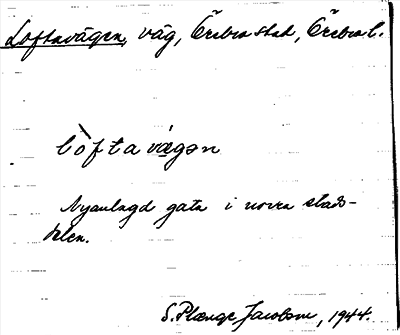 Loftavägen, väg, Örebro stad, Örebro l.
lòftavägən
Nyanlagd gata i norra stads-
delen.
S. Plænge Jacobson, 1944.